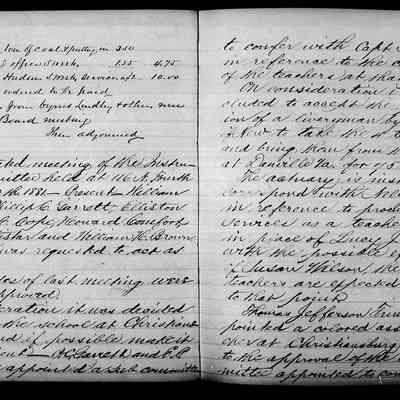 ton of coal & putting in 3.50
office 5 mos. 1.25 4.75
Hudson 5 mos. services 10.00
ordered to be paid
from Cyrus Lindley & others were
Board meeting
Then adjourned
meeting of the Instruc-
held at
1881 - Present - William
Philip C. Garrett, Elliston
Cope, Howard Comfort
and William H. Brown
was requested to act as
of last meeting were
approved
it was decided
the school at Christians
and if possible make it
P. C. Garrett and E. P.
appointed a sub committee
to confer with Capt
in reference to the
of the teachers at that
On consideration
cluded to accept the
ion of a
to take the
and bring them from
at Danville Va. for $5
The actuary is ins
correspond with
in reference to
services as a teacher
in place of Lucy
with the possible
of Susan Wilson, the
teachers are expected
to that point
Thomas Jefferson
pointed a colored ass
cher at Christiansburg
to the approval of the
mittee appointed to con